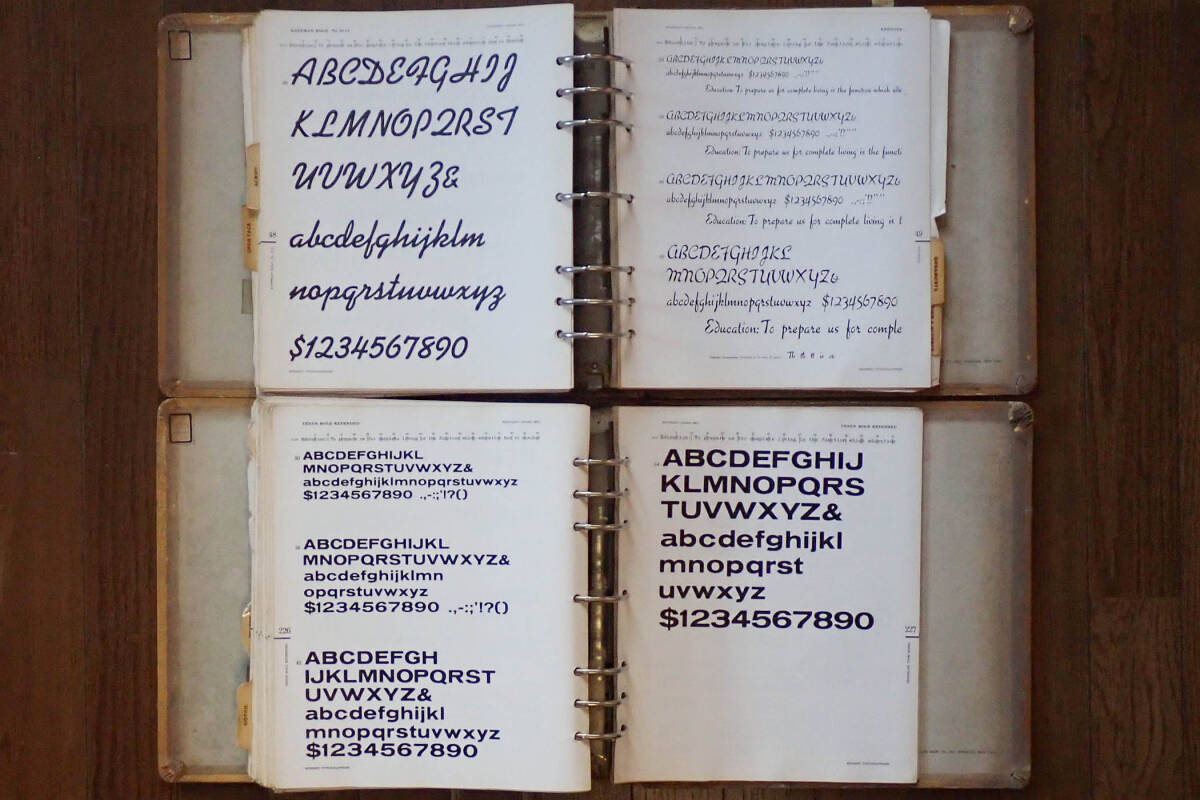 KAUFMAN BOLD
ABCDEFGHIJ
KLMNOPQRST
UVWXYZ&
abcdefghijklm
nopqrstuvwxyz
$1234567890
48
ABCDEFGHIJKLMNOPQRSTUVWXYZ&
abcdefghijklmnopqrstuvwxyz $1234567890 .,-:;'!?""
Education: To prepare us for complete living is the function which
ABCDEFGHIJKLMNOPQRSTUVWXYZ&
abcdefghijklmnopqrstuvwxyz $1234567890 .,-:;'!?""
Education: To prepare us for complete living is the functi
ABCDEFGHIJKLMNOPQRSTUVWXYZ&
abcdefghijklmnopqrstuvwxyz $1234567890 .,-:;'!?""
Education: To prepare us for complete living is t
ABCDEFGHIJKL
MNOPQRSTUVWXYZ&
abcdefghijklmnopqrstuvwxyz $1234567890
Education: To prepare us for comple
49
ABCDEFGHIJKL
MNOPQRSTUVWXYZ&
abcdefghijklmnopqrstuvwxyz
$1234567890 .,-:;'!?()
ABCDEFGHIJKL
MNOPQRSTUVWXYZ&
abcdefghijklmn
opqrstuvwxyz
$1234567890 .,-:;'!?()
ABCDEFGH
IJKLMNOPQRST
UVWXYZ&
abcdefghijkl
mnopqrstuvwxyz
$1234567890
226
ABCDEFGHIJ
KLMNOPQRS
TUVWXYZ&
abcdefghijkl
mnopqrst
uvwxyz
$1234567890
227